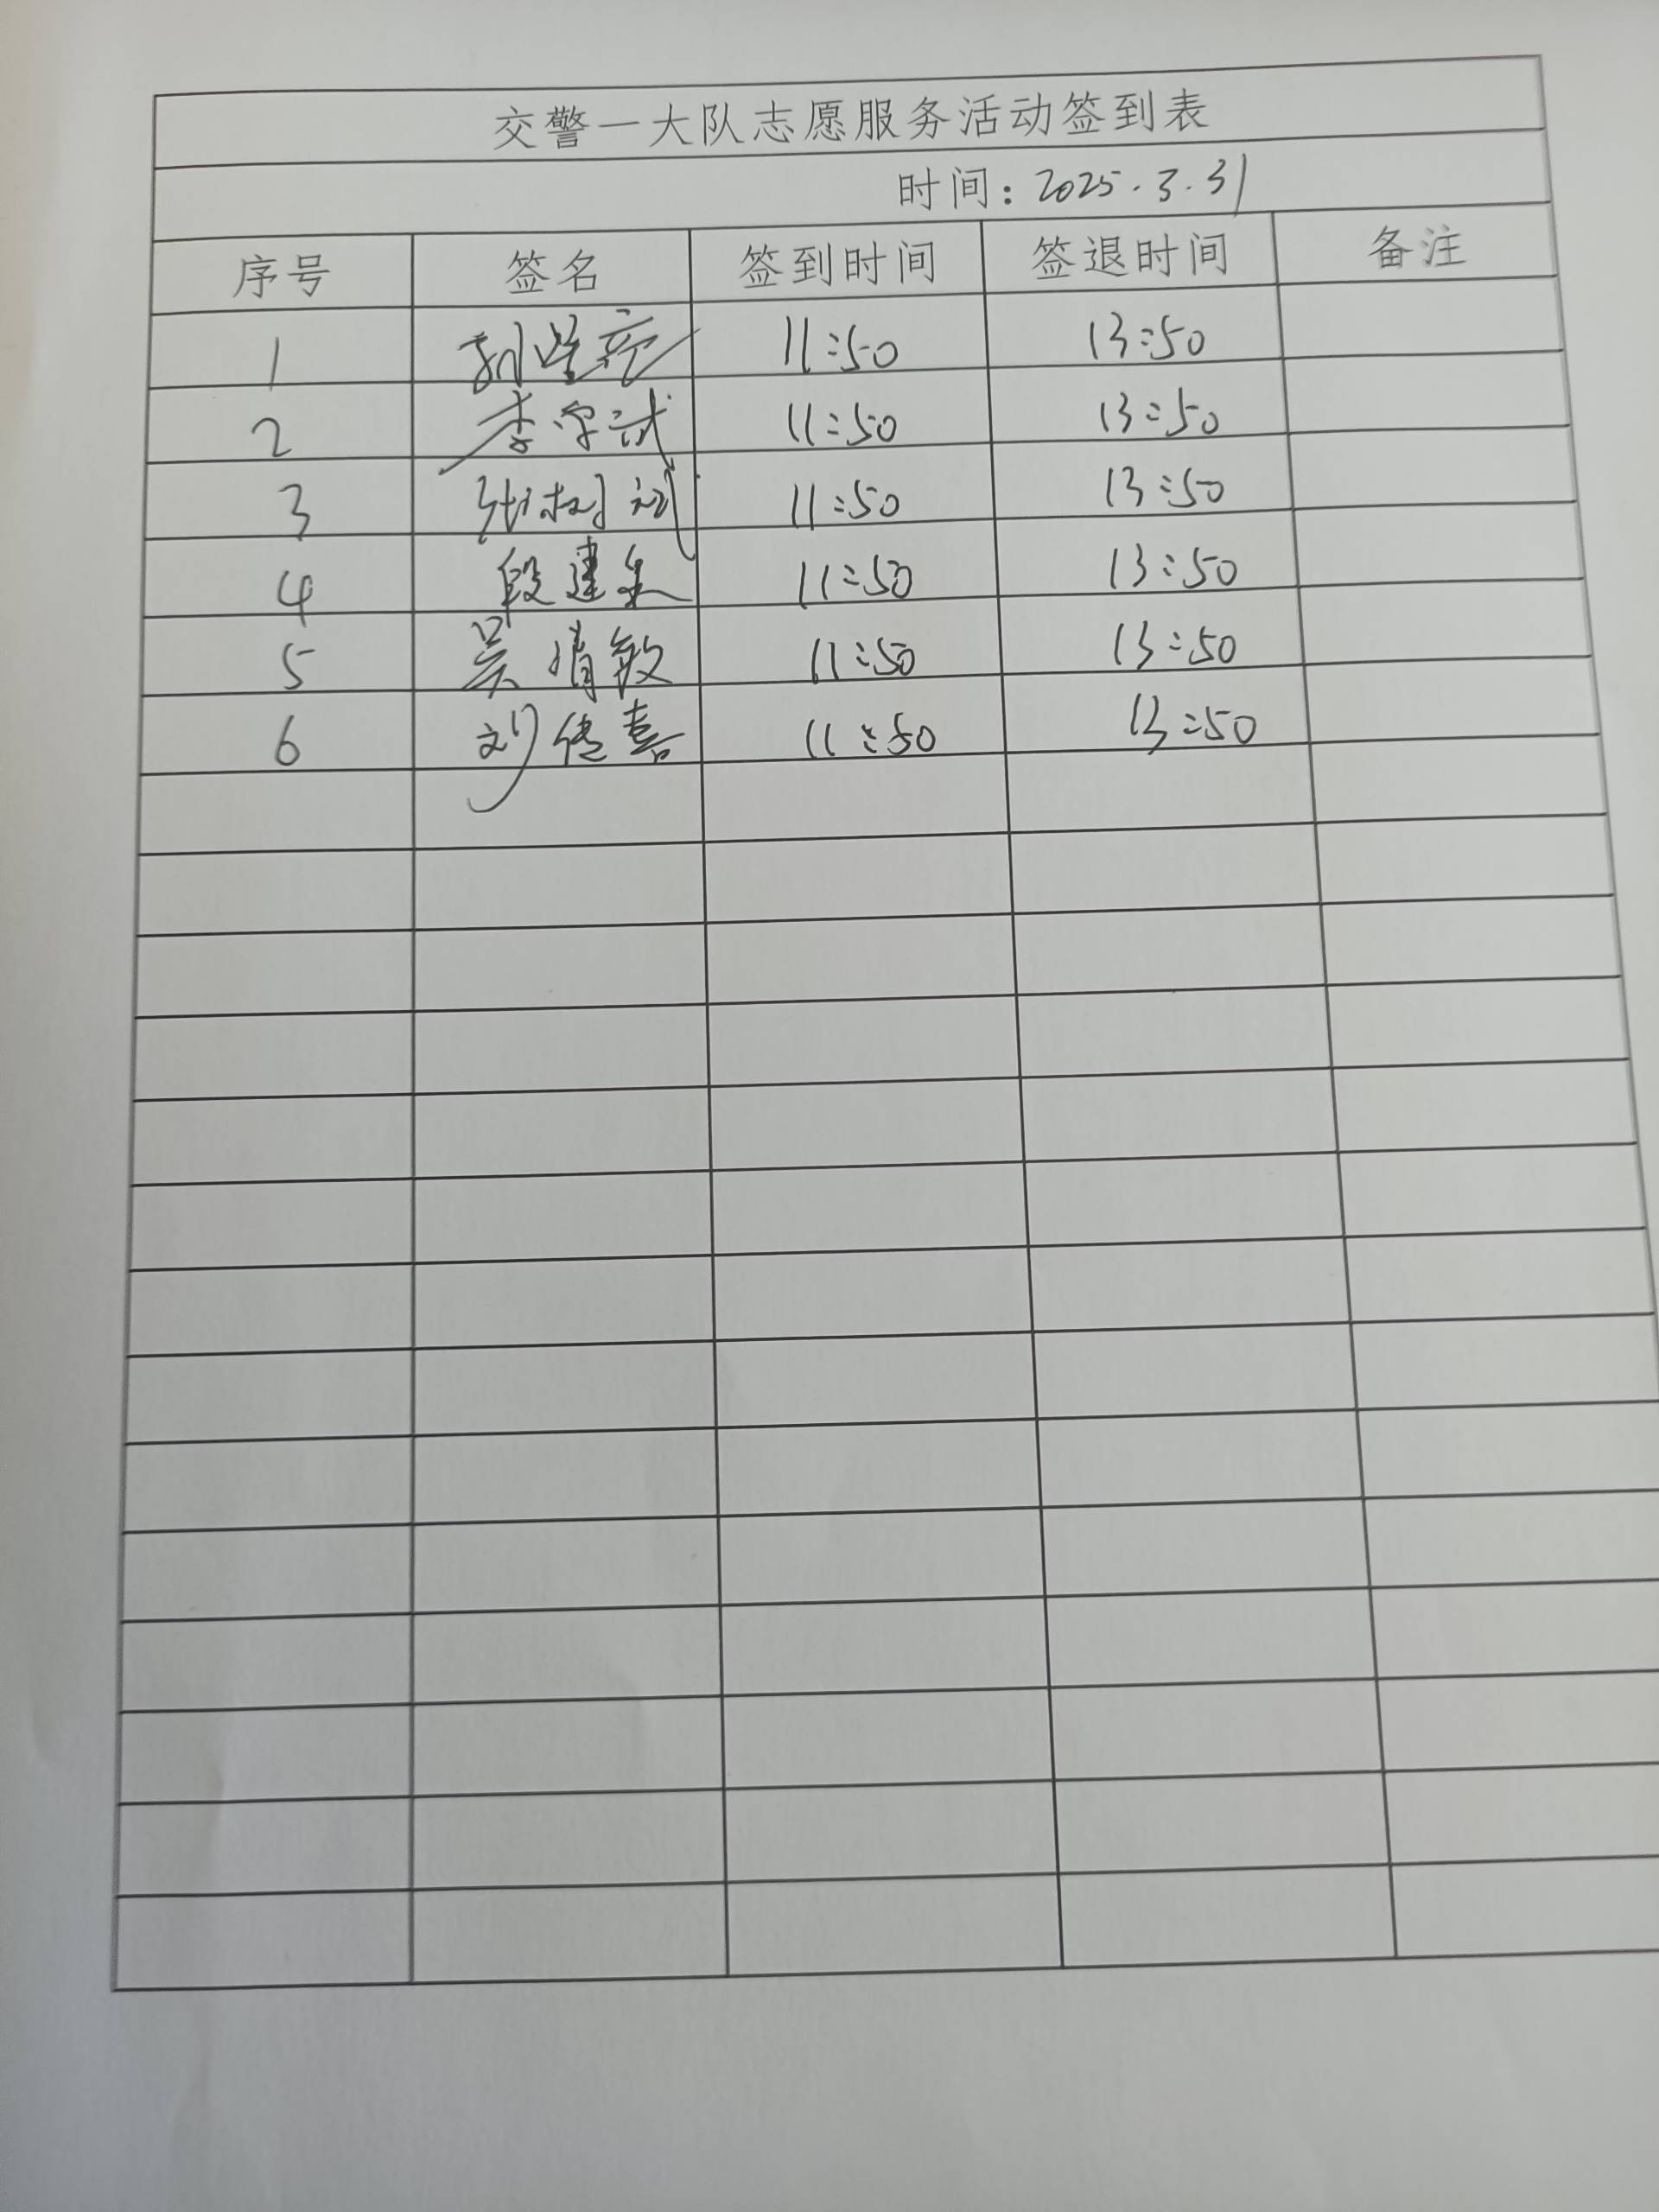 交警一大队志愿服务活动签到表
时间：2025.3.31
序号 签名 签到时间 签退时间 备注
1 11:50 13:50
2 李学试 11:50 13:50
3 张树 11:50 13:50
4 段建 11:50 13:50
5 吴俏敏 11:50 13:50
6 刘传喜 11:50 13:50